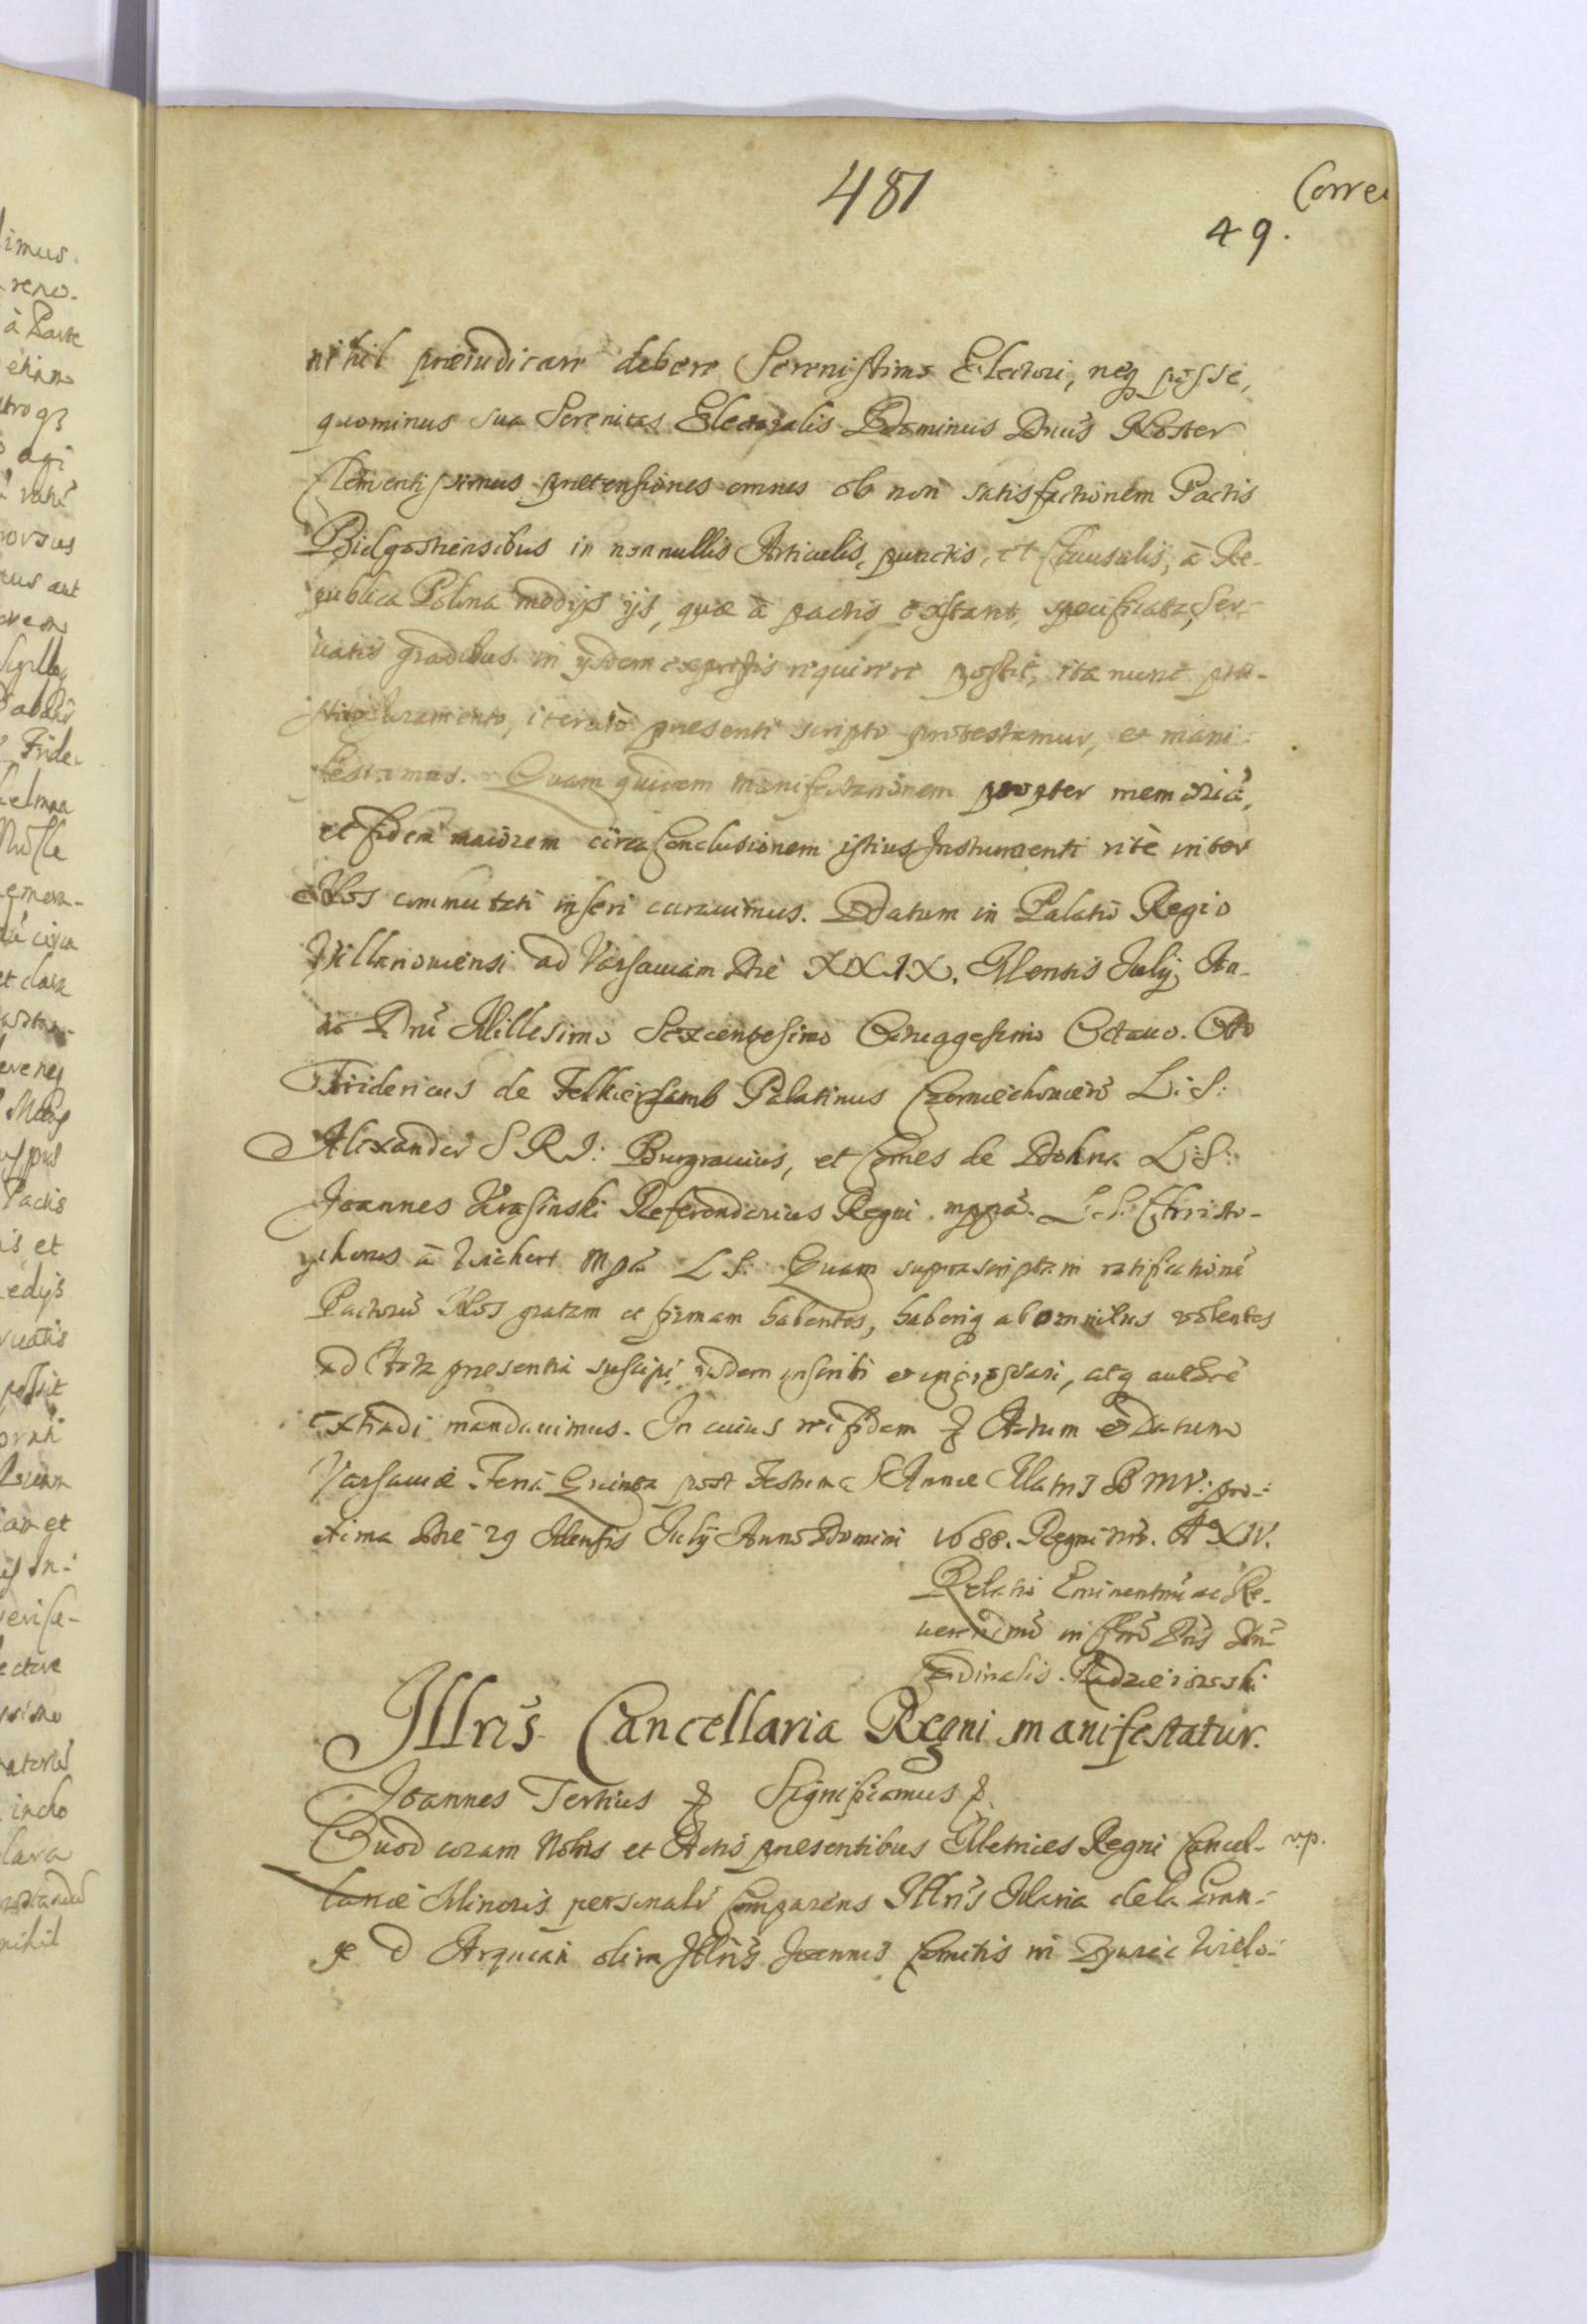 481
Corre
49.
nihil præiudicare debere Serenissimo Electori, neq posse,
quominus sua Serenitas Electoralis Dominus Dnus Noster
Clementissimus prætensiones omnes ob non satisfactionem Pactis
Bidgostiensibus in nonnullis Articulis, punctis, et Clausulis, à Re-
publica Polona modijs ijs, quæ à pactis exstant, specificata, Ser-
uatis gradibus in ijsdem expressis requirere possit, ita nunc præ-
stito Juramento, iterato præsenti scripto protestamur, et mani-
festamus. Quam quidem manifestationem propter memoriã,
et fidem maiorem circa Conclusionem istius Instrumenti ritè inter
Nos commutati inseri curauimus. Datum in Palatio Regio
Villanoviensi ad Varsauiam Die XXIX. Mensis Julij An-
no Dni Millesimo Sexcentesimo Octuagesimo Octauo. Otto
Fridericus de Felkierzamb Palatinus Czerniechouien L: S:
Alexander S R I: Burgrauius, et Comes de Dohna L: S:
Joannes Krasinski Referendarius Regni mppa. L. S. Christo-
phorus à Wichert Mpa L S: Quam suprascriptam ratificationẽ
Pactorũ Nos gratam et firmam habentes, haberiq ab omnibus volentes
ad Acta præsentia suscipi, ijsdem inscribi et ingrossari, atq authẽ
extradi mandauimus. In cuius rei fidem Actum et Datum
Varsauiæ Feria Quinta post Festum S Annæ Matris B M V: pro-
xima Die 29 Mensis Julij Anno Domini 1688. Regni nri. A° XIV.
Relatio Eminentmi ac Re-
uerendmi in Chro Pris Dni
Cardinalis Radzieiowski
Illris Cancellaria Regni manifestatur.
Joannes Tertius Significamus
Quod coram Nobis et Actis præsentibus Metrices Regni Cancel-
v.p.
lariæ Minoris personalr Comparens Illris Maria de la Gran-
ge d Arquian olim Illris Joannis Comitis in Zywiec Wielo-